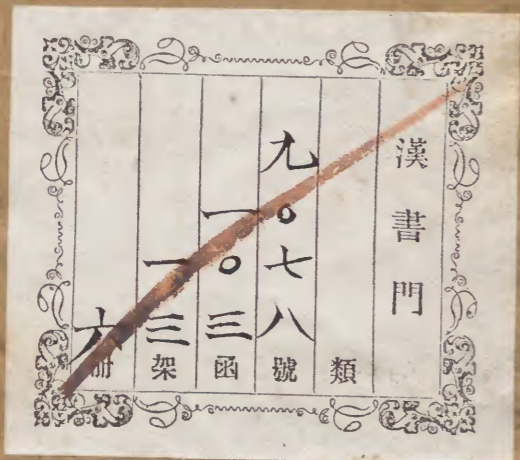 漢書門
類
九〇七八號
一〇三函
一三架
六冊